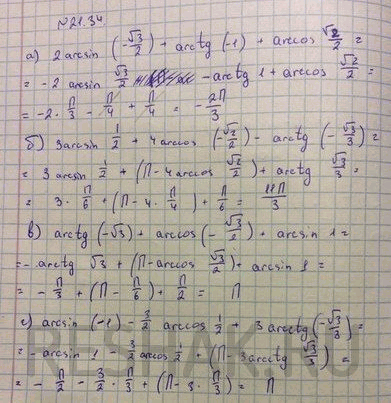 №21.34.
а) 2 arcsin (-√3/2) + arctg (-1) + arccos √2/2 =
= -2 arcsin √3/2 - arctg 1 + arccos √2/2 =
= -2 · П/3 - П/4 + П/4 = - 2П/3
б) 3arcsin 1/2 + 4arccos (-√2/2) - arctg (-√3/3) =
= 3 arcsin 1/2 + (П - 4arccos √2/2) + arctg √3/3 =
= 3 · П/6 + (П - 4 · П/4) + П/6 = 11П/3
в) arctg (-√3) + arccos (-√3/2) + arcsin 1 =
= - arctg √3 + (П - arccos √3/2) + arcsin 1 =
= - П/3 + (П - П/6) + П/2 = П
г) arcsin (-1) - 3/2 arccos 1/2 + 3 arcctg (-√3/3) =
= - arcsin 1 - 3/2 arccos 1/2 + (П - 3arcctg √3/3) =
= - П/2 - 3/2 · П/3 + (П - 3 · П/3) = П
RESHAK.RU